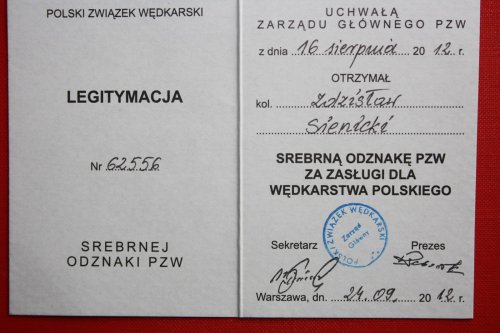 POLSKI ZWIĄZEK WĘDKARSKI
LEGITYMACJA
Nr 62556
SREBRNEJ
ODZNAKI PZW
UCHWAŁĄ
ZARZĄDU GŁÓWNEGO PZW
z dnia 16 sierpnia 2012 r.
OTRZYMAŁ
kol. Zdzisław
Sienicki
SREBRNĄ ODZNAKĘ PZW
ZA ZASŁUGI DLA
WĘDKARSTWA POLSKIEGO
POLSKI ZWIĄZEK WĘDKARSKI
Zarząd
Główny
Sekretarz Prezes
Warszawa, dn. 24.09. 2012 r.